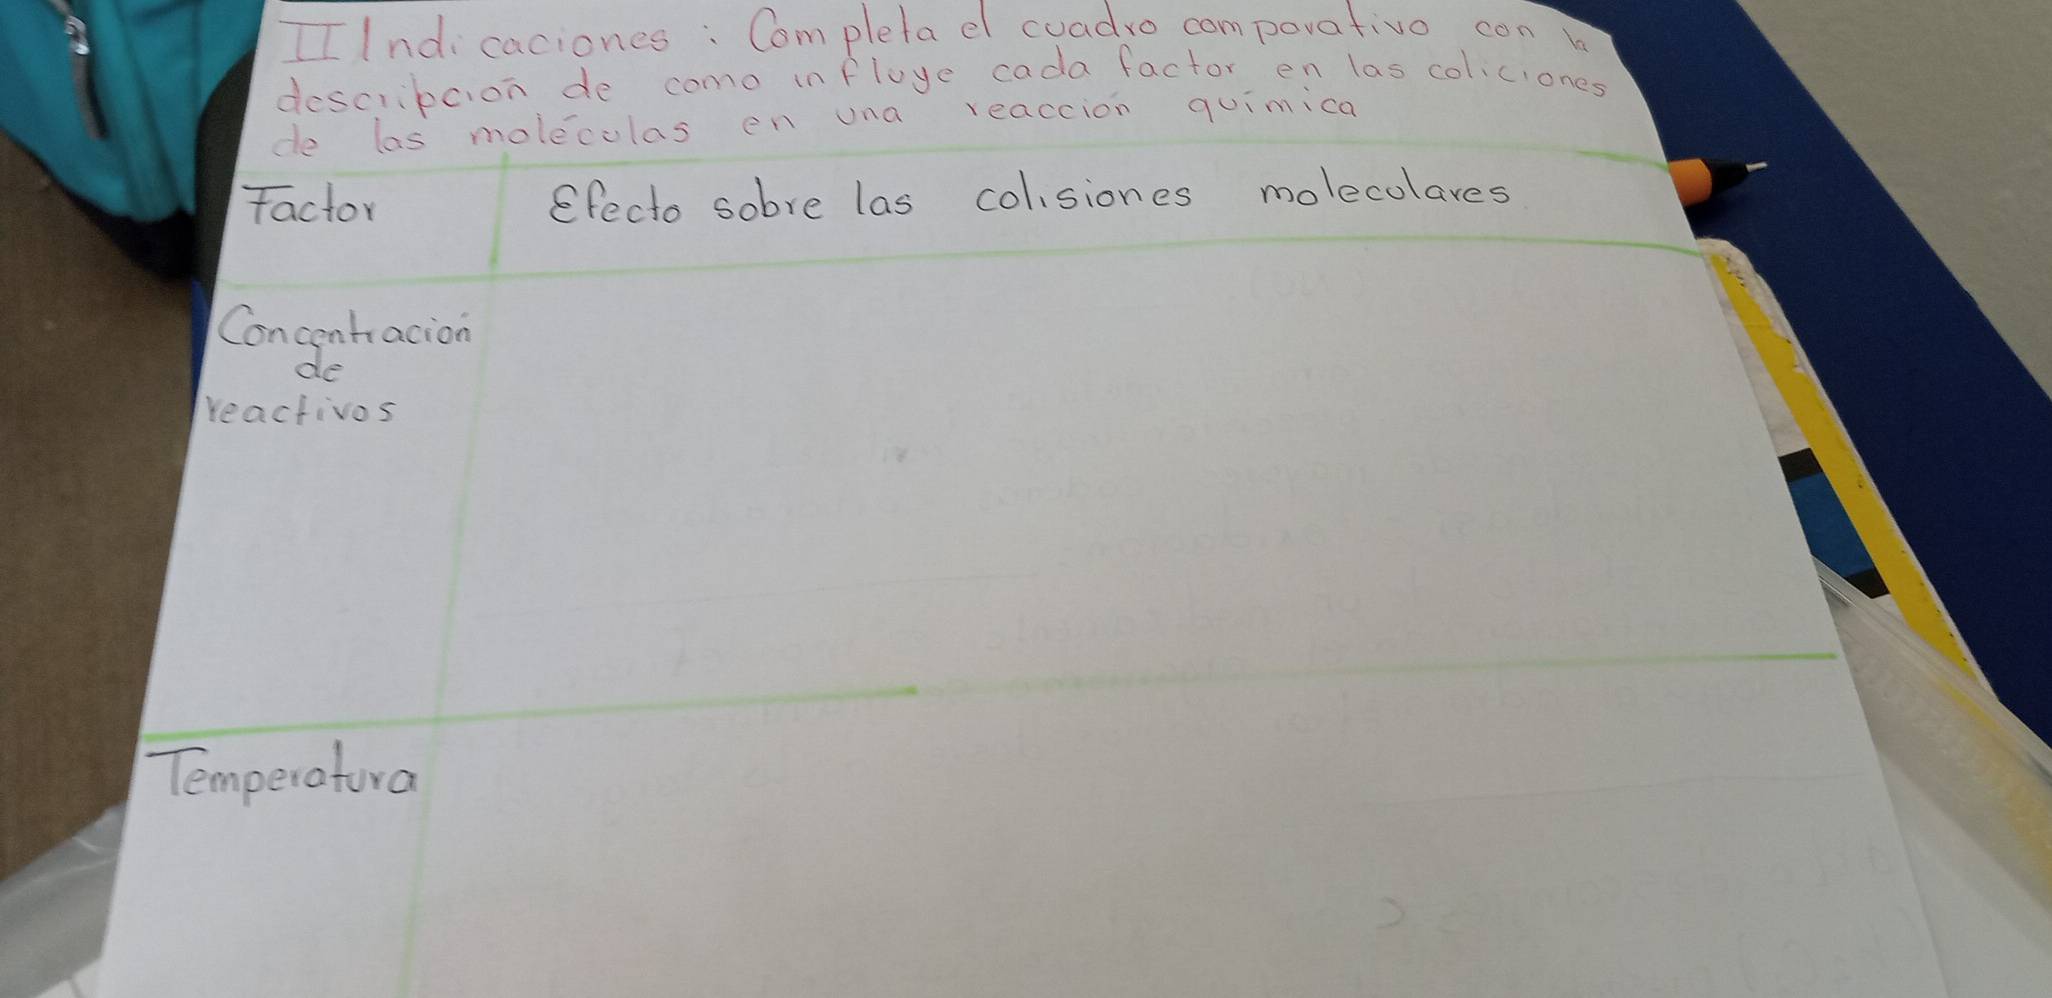 II Indicaciones: Completa el cuadro comparativo con la
descripción de como influye cada factor en las coliciones
de las moléculas en una reacción química
Factor Efecto sobre las colisiones moleculares
Concentración
de
reactivos
Temperatura